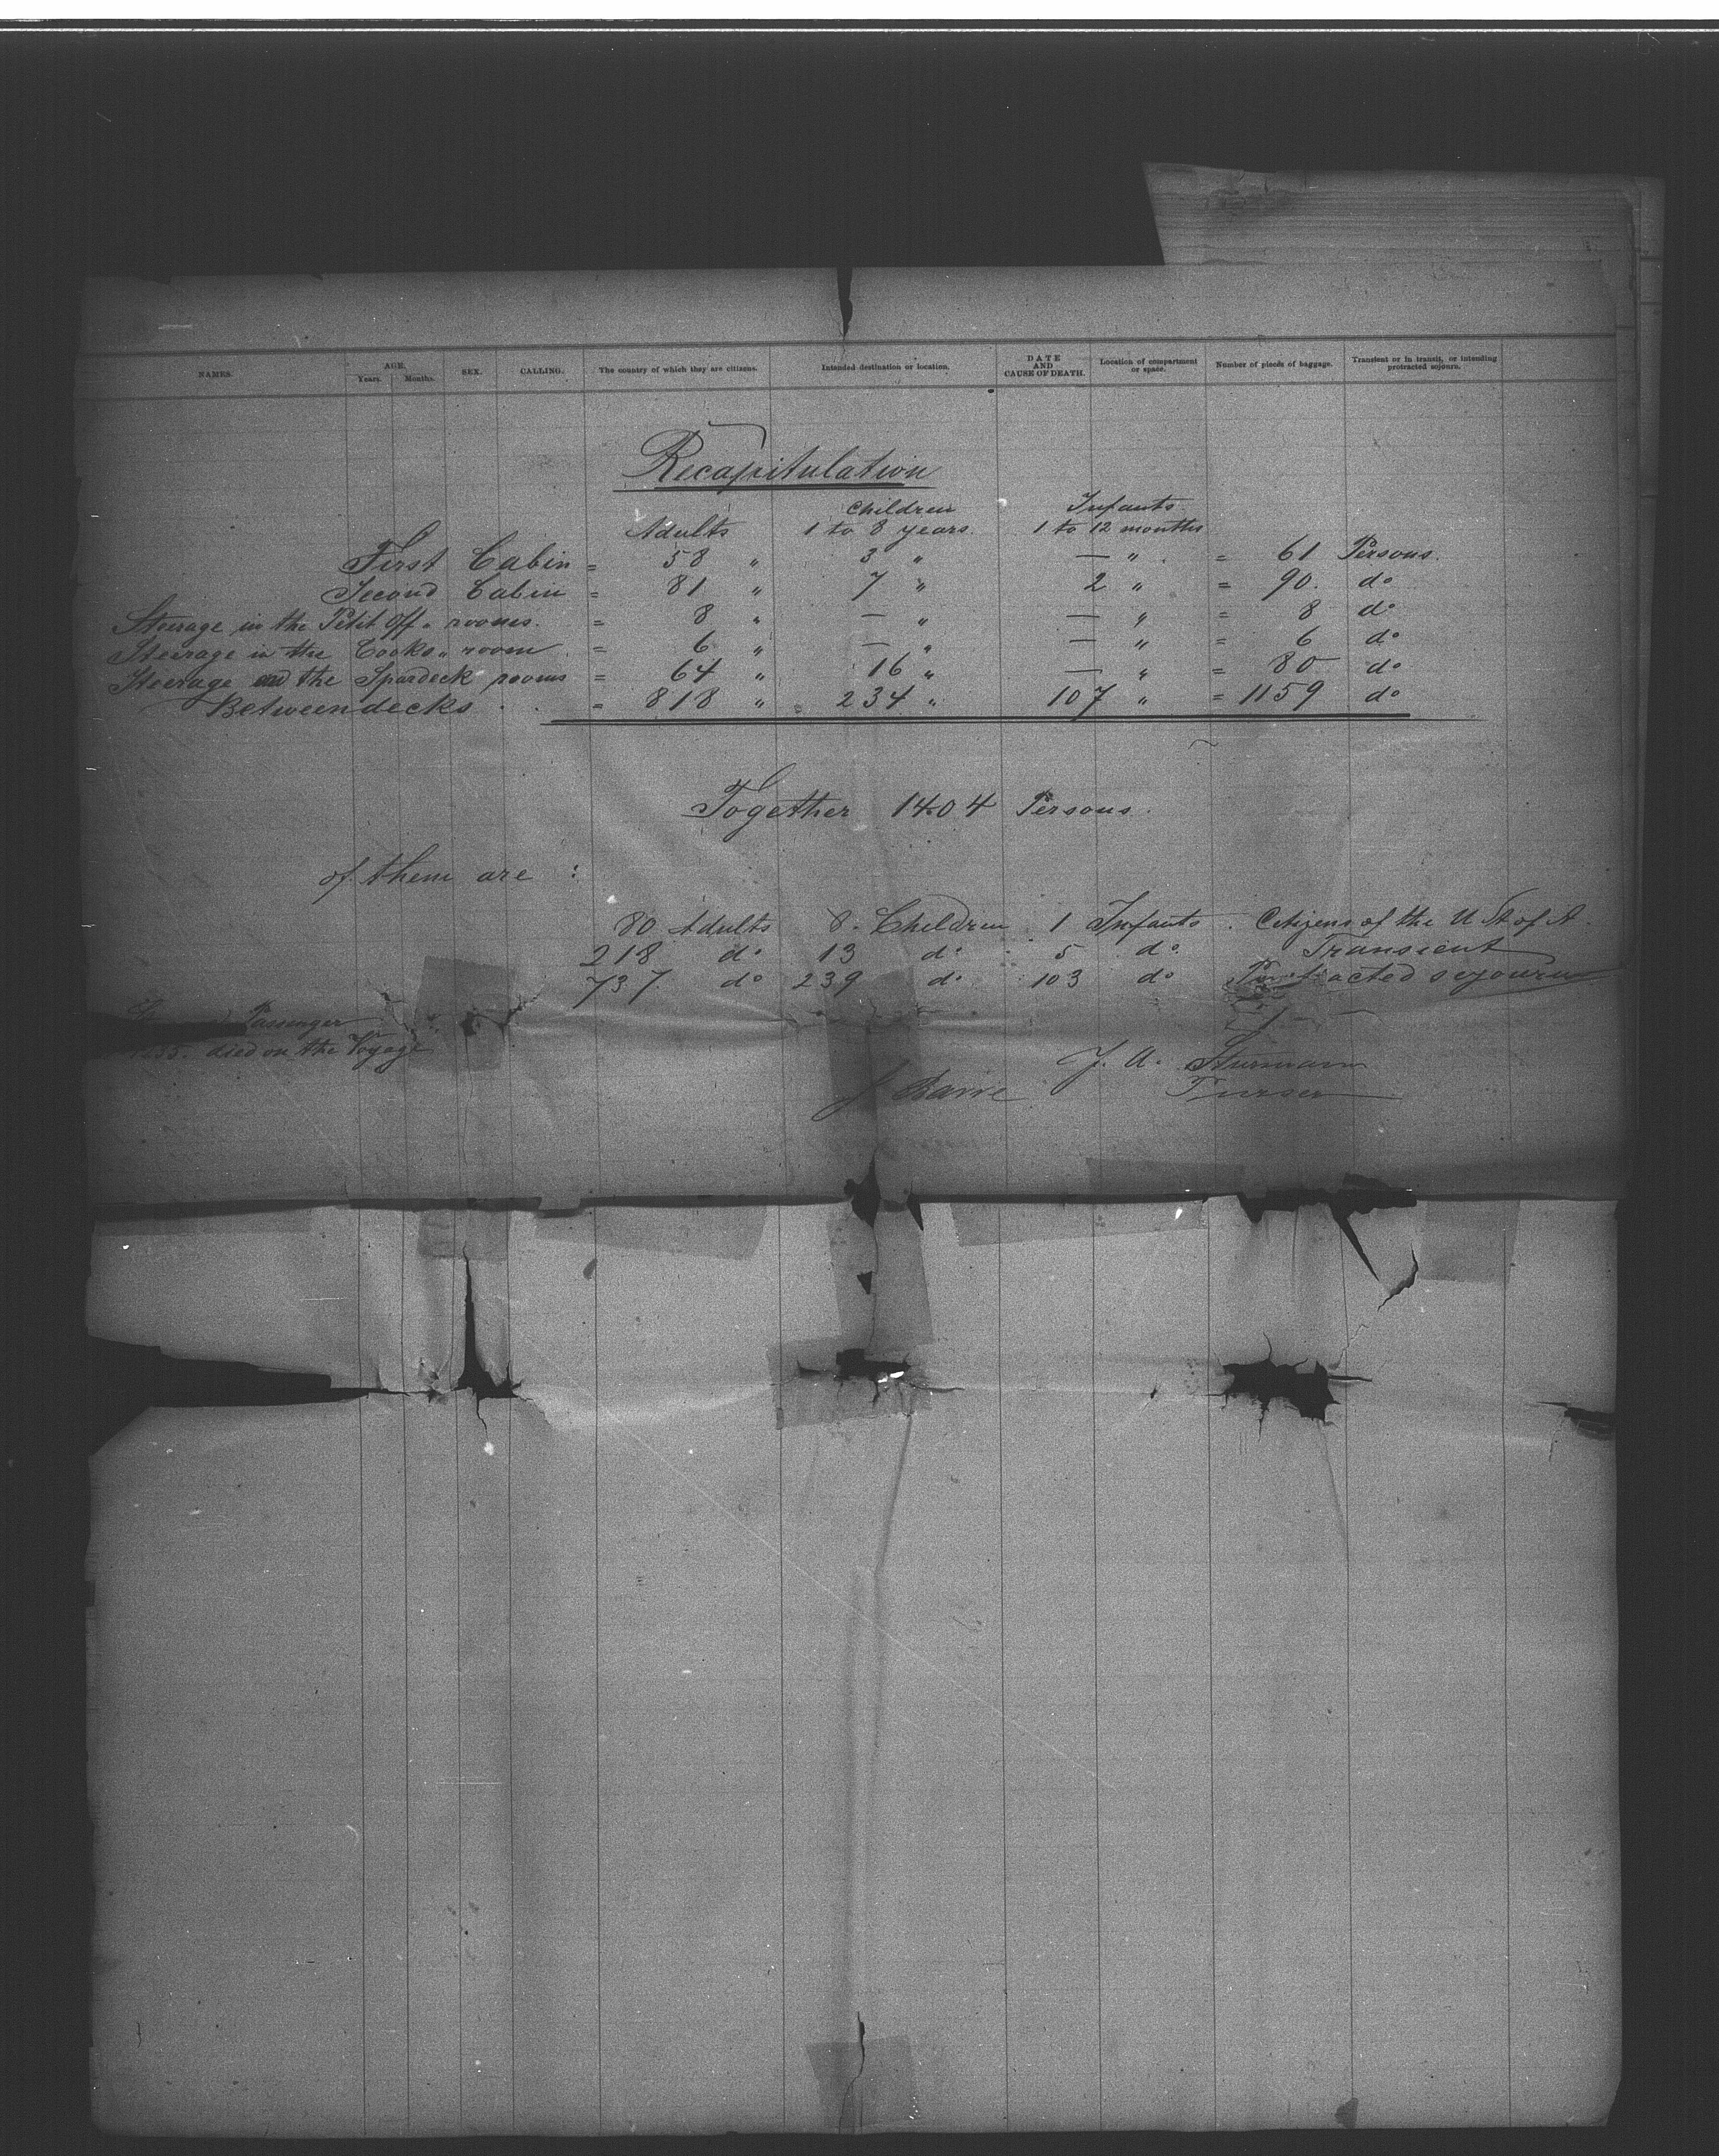 NAMES. AGE. Years. Months. SEX. CALLING. The country of which they are citizens. Intended destination or location. DATE AND CAUSE OF DEATH. Location of compartment or space. Number of pieces of baggage. Transient or in transit, or intending protracted sojourn.
Recapitulation
Adults Children 1 to 8 years. Infants 1 to 12 months
First Cabin = 58 " 3 " — " . = 61 Persons.
Second Cabin = 81 " 7 " 2 " = 90. do
Steerage in the Petit off. rooms. = 8 " — " — " = 8 do
Steerage in the Cooks " room . = 6 " — " — " = 6 do
Steerage the Spardeck rooms = 64 " 16 " — " = 80 do
Betweendecks . . = 818 " 234 " 107 " = 1159 do
Together 1404 Persons.
of them are :
80 Adults 8. Children 1 Infants . Citizens of the U. St. of A.
218 do 13 do 5 do Transient
737. do 239 do 103 do Protracted sojourn
Passenger
died on the Voyage
J. A. Sturmann
J Barre Purser